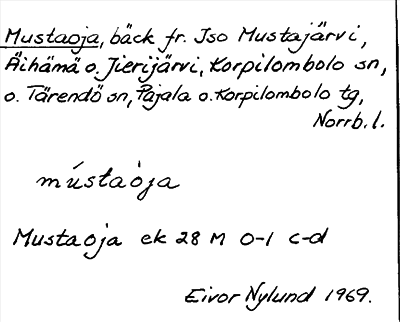 Mustaoja, bäck fr. Iso Mustajärvi,
Äihämä o. Jierijärvi, Korpilombolo sn,
o. Tärendö sn, Pajala o. Korpilombolo tg,
Norrb. l.
mústaòja
Mustaoja ek 28 M 0-1 c-d
Eivor Nylund 1969.